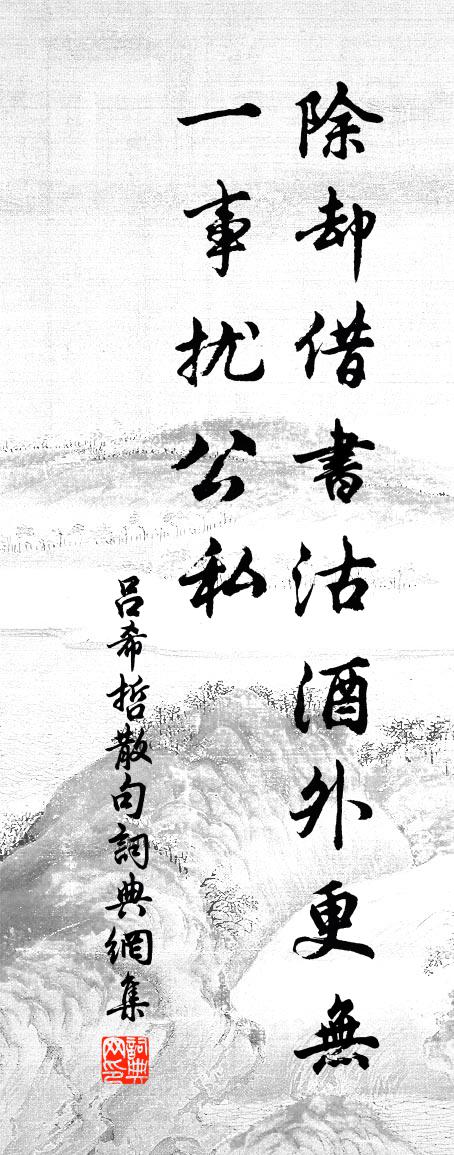 除却借書沽酒外更無
一事扰公私
吕希哲散句詞典網集
詞典网印